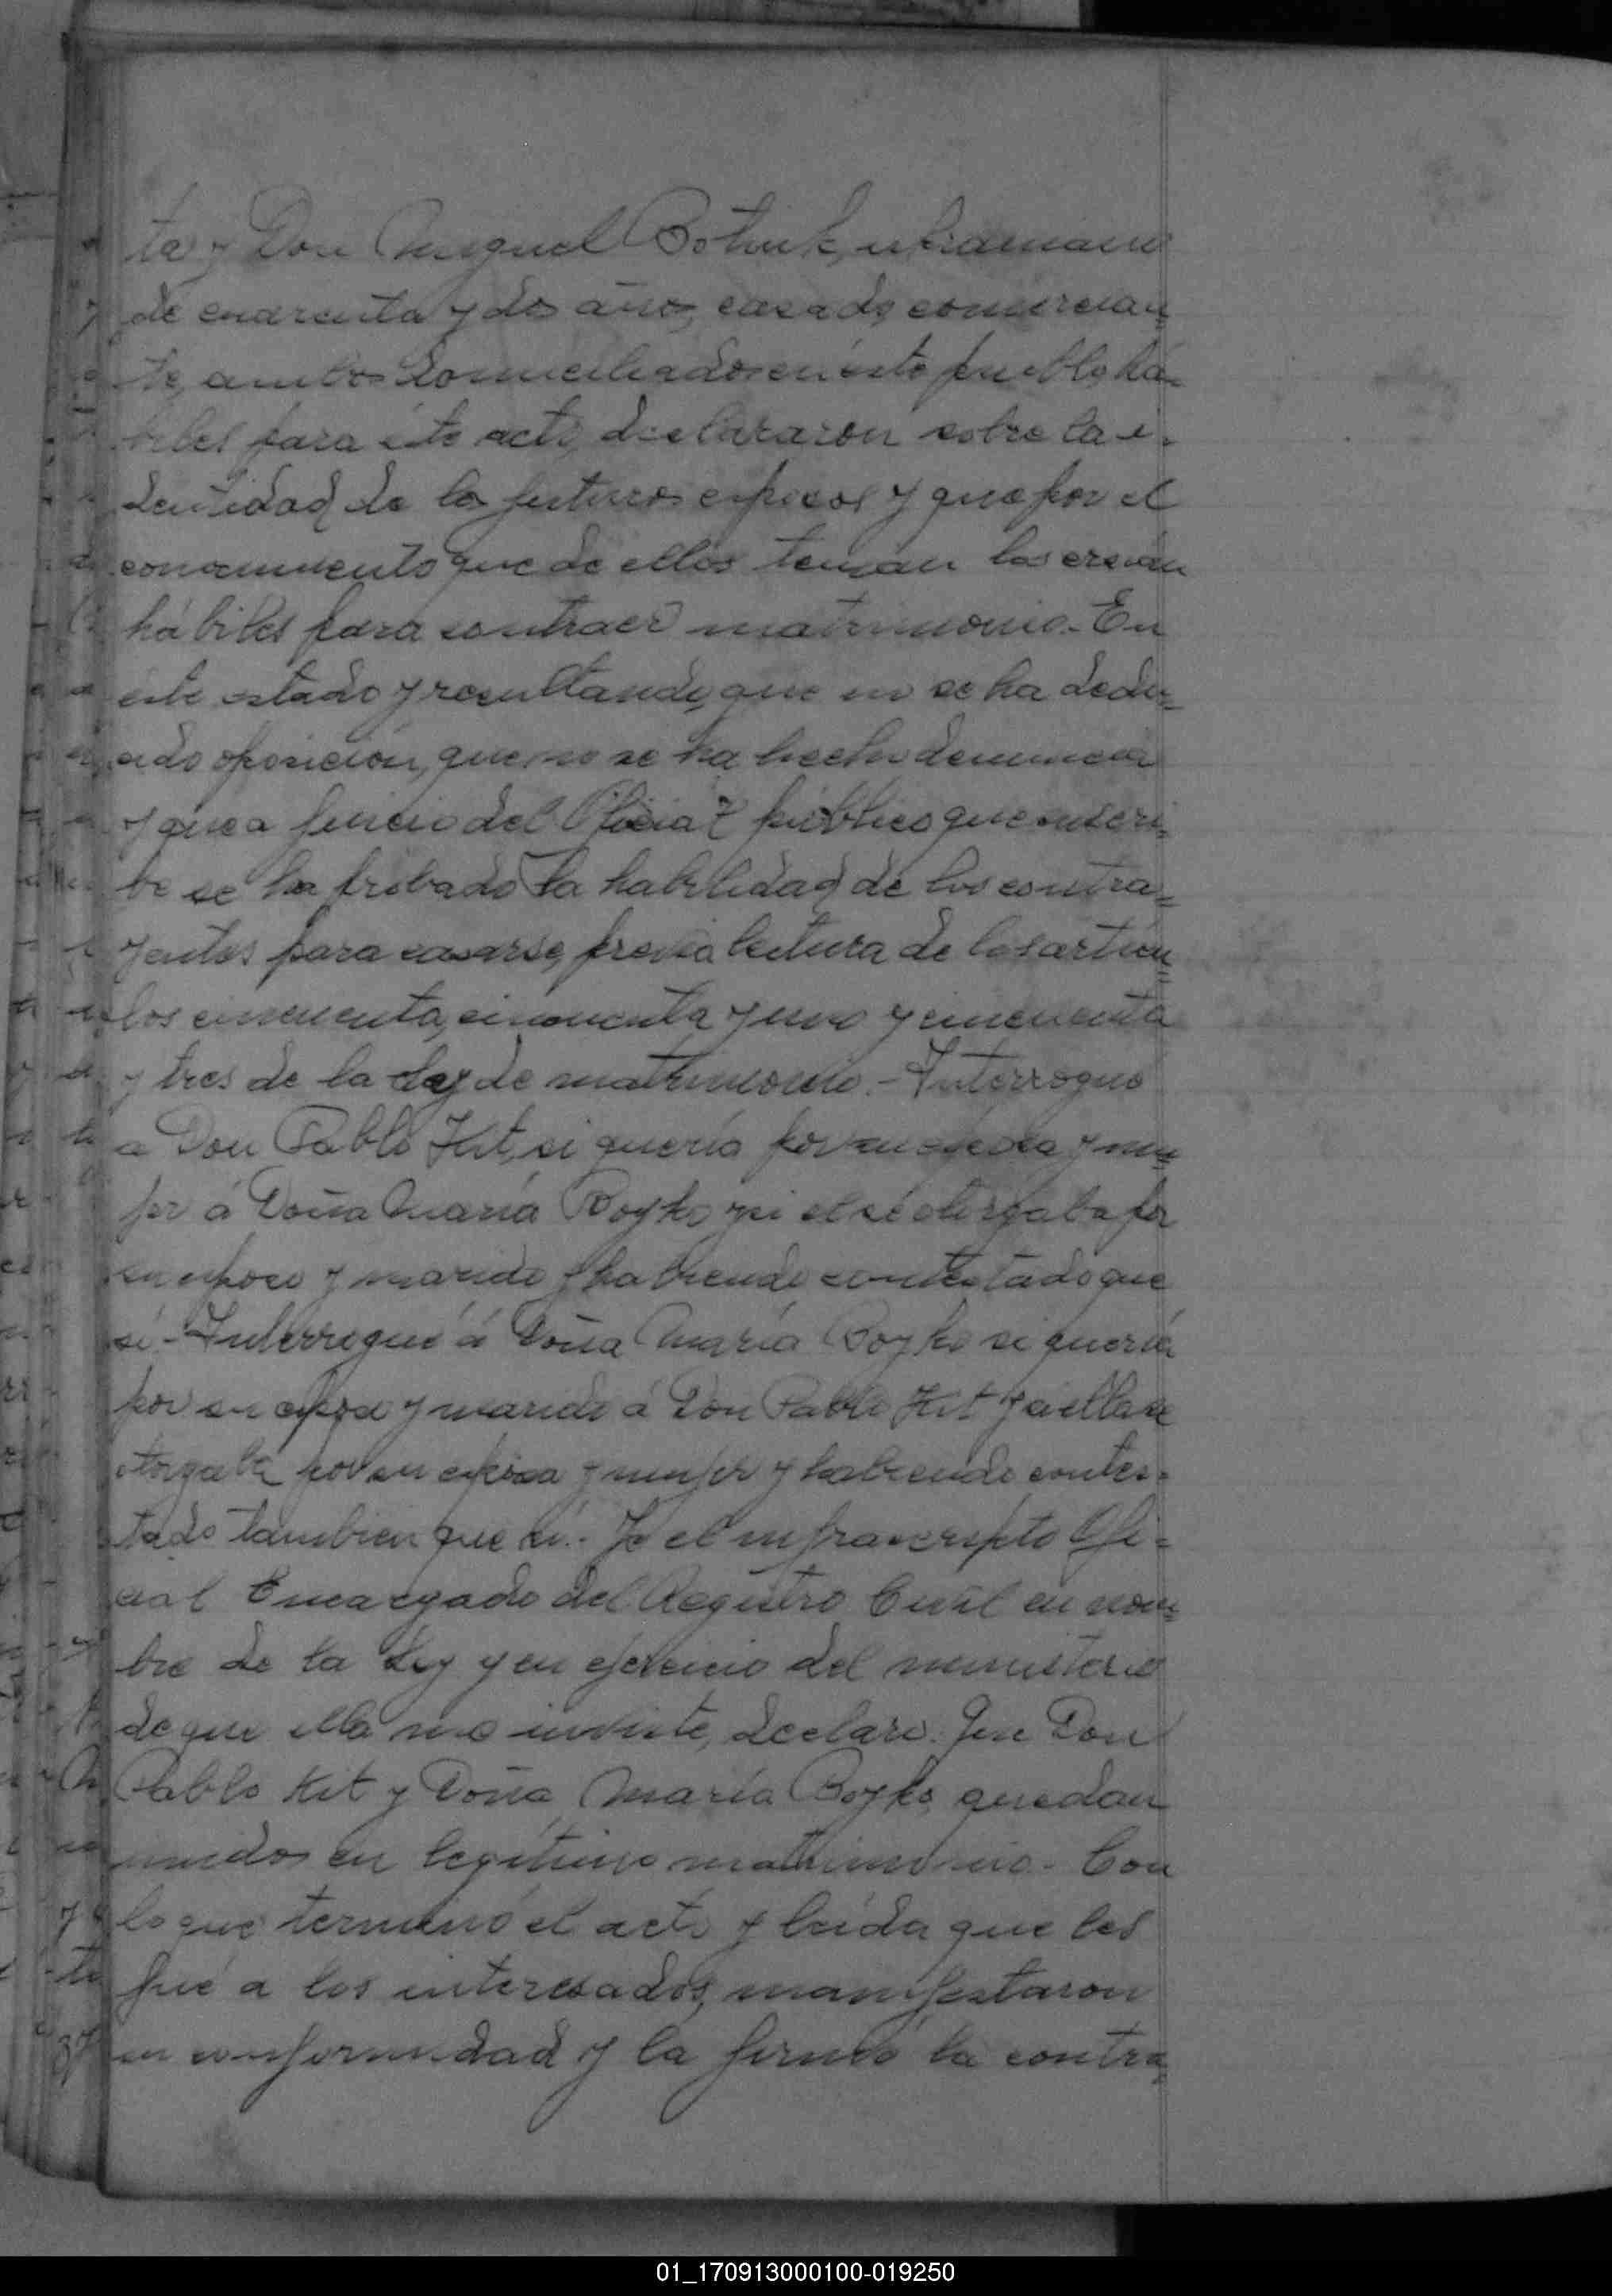 ta y Don Miguel ukraniano
de cuarenta y dos años, casado, comercian=
te, ambos domiciliados en éste pueblo, há=
biles para éste acto, declararon sobre la i=
dentidad de los futuros esposos y que por el
conocimiento que de ellos tenían los creían
hábiles para contraer matrimonio.- En
éste estado y resultando, que no se ha dedu=
cido oposición, que no se ha hecho denuncia
y que a juicio del Oficial público que suscri=
be se ha probado la habilidad de los contra=
yentes para casarse, previa lectura de los artícu=
los cincuenta, cincuenta y uno y cincuenta
y tres de la Ley de matrimonio.- Interrogué
a Don Pablo Kit, si quería por su esposa y mu=
jer á Doña María Boyko y si el se otorgaba por
su esposo y marido y habiendo contestado que
sí.- Interrogué á Doña María Boyko si quería
por su esposo y marido á Don Pablo Kit y si ella se
otorgaba por su esposa y mujer y habiendo contes=
tado tambien que sí.- Yo el infrascripto Ofi=
cial Encargado del Registro Civil en nom=
bre de la Ley y en ejercicio del ministerio
de que ella me inviste, declaro: Que Don
Pablo Kit y Doña María Boyko, quedan
unidos en legítimo matrimonio.- Con
lo que terminó el acto y leída que les
fué a los interesados, manifestaron
su conformidad y la firmó la contra=
01_170913000100-019250